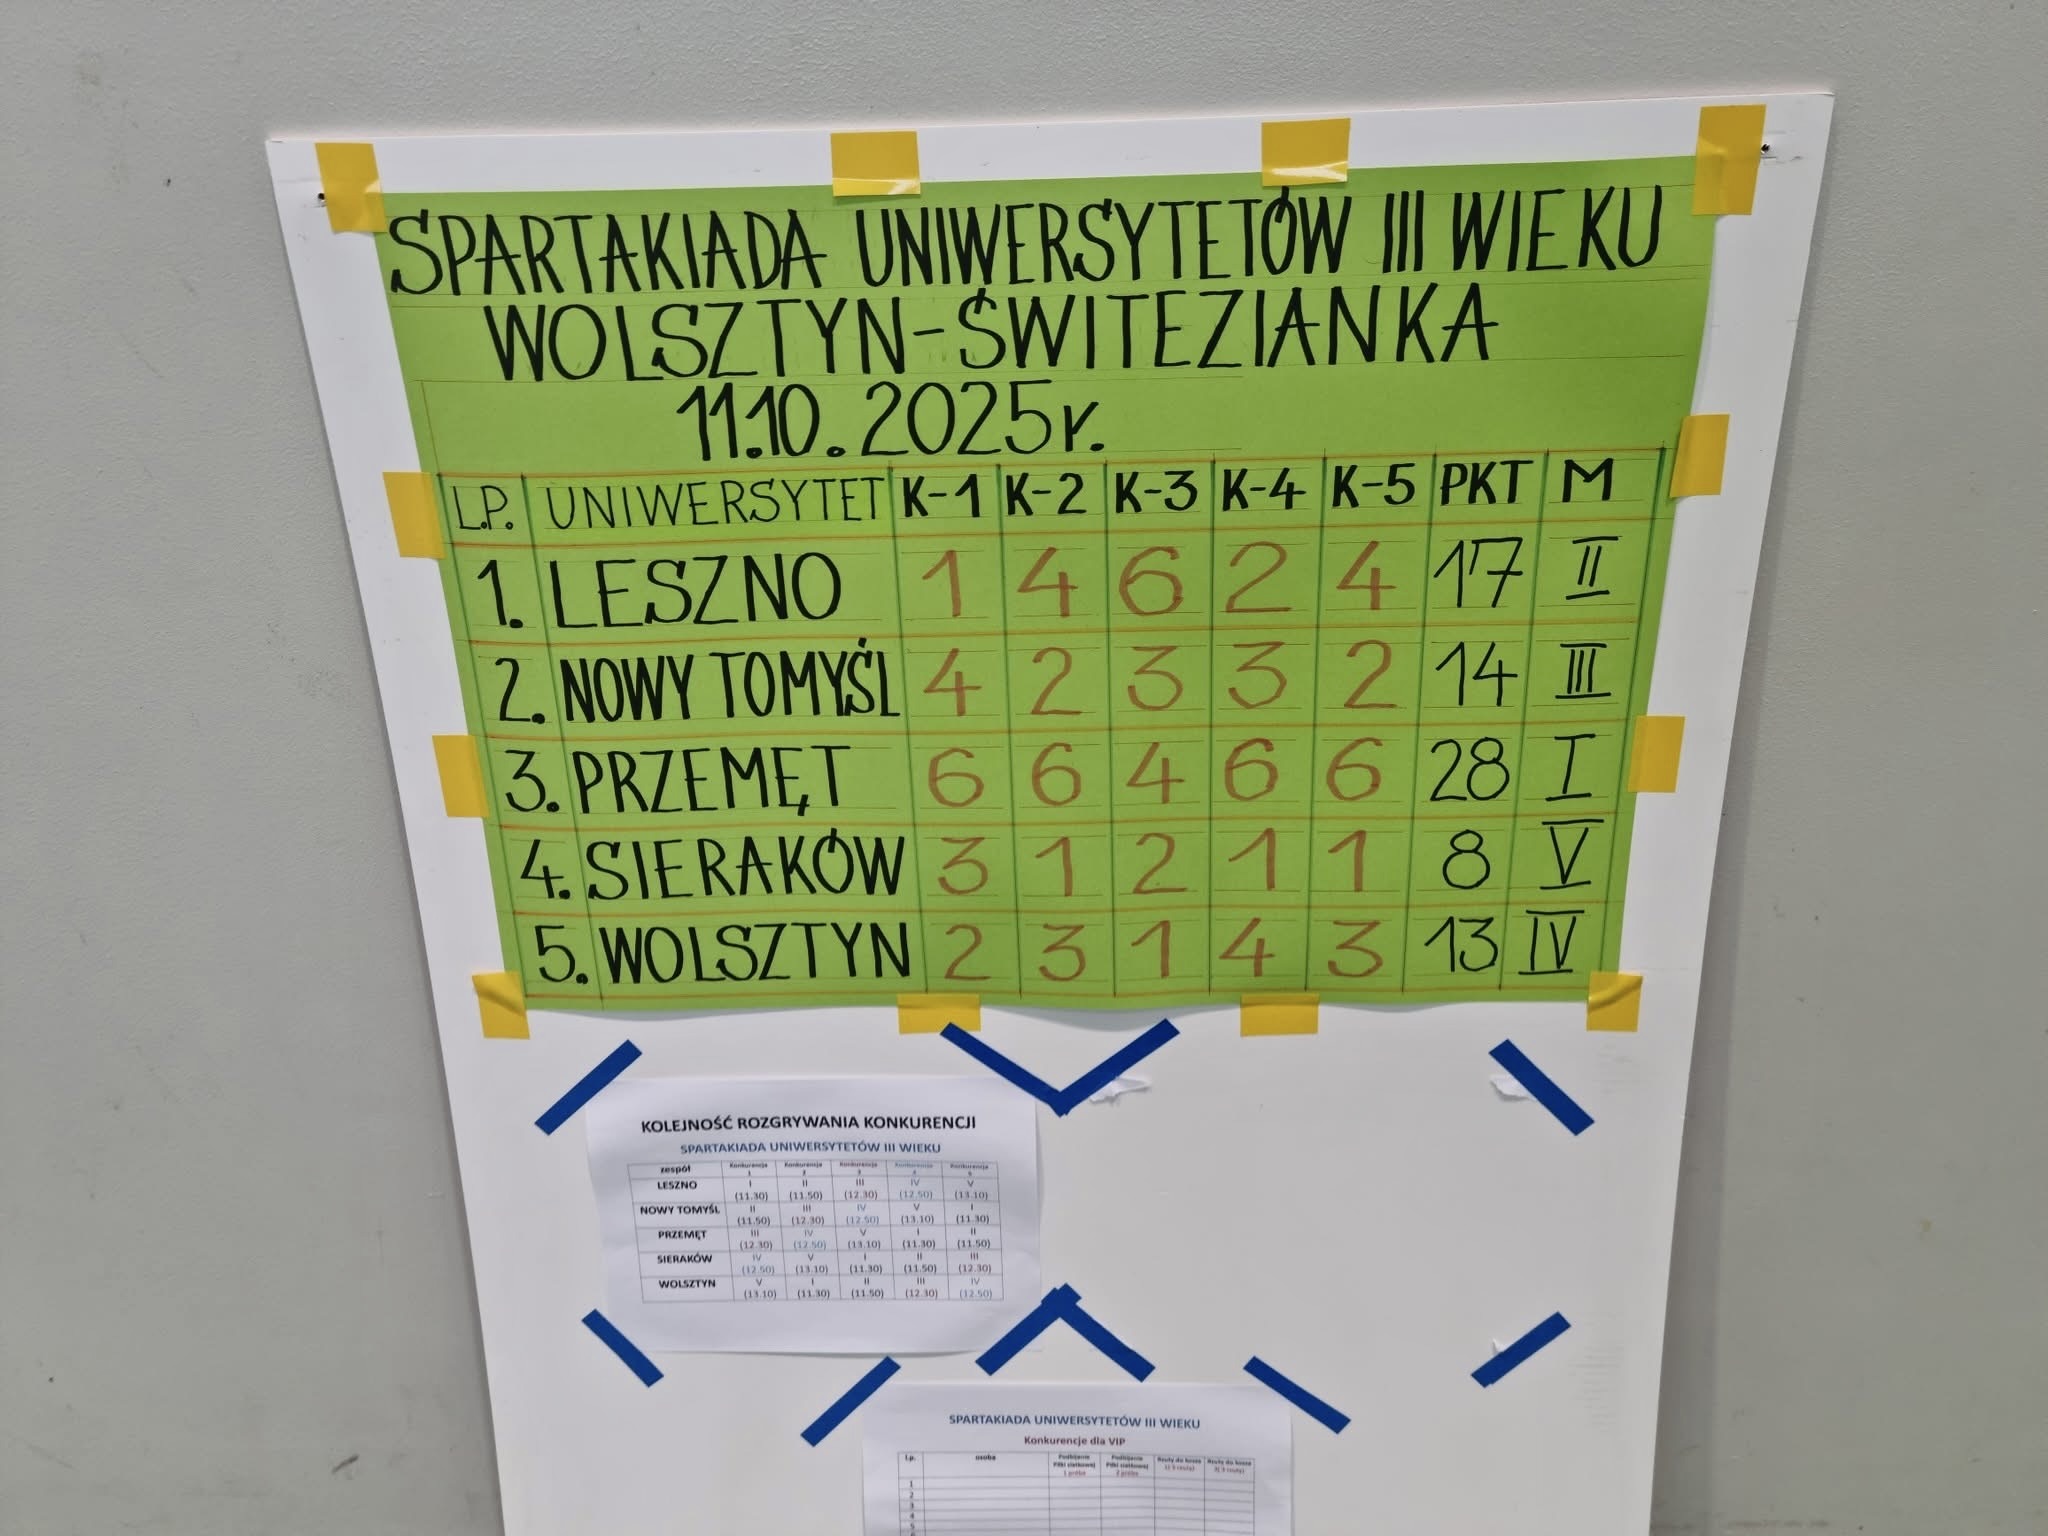 SPARTAKIADA UNIWERSYTETÓW III WIEKU
WOLSZTYN-ŚWITEZIANKA
11.10.2025r.
L.P. UNIWERSYTET K-1 K-2 K-3 K-4 K-5 PKT M
1. LESZNO 1 4 6 2 4 17 II
2. NOWY TOMYŚL 4 2 3 3 2 14 III
3. PRZEMĘT 6 6 4 6 6 28 I
4. SIERAKÓW 3 1 2 1 1 8 V
5. WOLSZTYN 2 3 1 4 3 13 IV
KOLEJNOŚĆ ROZGRYWANIA KONKURENCJI
SPARTAKIADA UNIWERSYTETÓW III WIEKU
zespół Konkurencja Konkurencja Konkurencja Konkurencja Konkurencja
1 2 3 4 5
LESZNO I II III IV V
(11.30) (11.50) (12.30) (12.50) (13.10)
NOWY TOMYŚL II III IV V I
(11.50) (12.30) (12.50) (13.10) (11.30)
PRZEMĘT III IV V I II
(12.30) (12.50) (13.10) (11.30) (11.50)
SIERAKÓW IV V I II III
(12.50) (13.10) (11.30) (11.50) (12.30)
WOLSZTYN V I II III IV
(13.10) (11.30) (11.50) (12.30) (12.50)
SPARTAKIADA UNIWERSYTETÓW III WIEKU
Konkurencje dla VIP
l.p. osoba Podbijanie Podbijanie Rzuty do kosza Rzuty do kosza
Piłki siatkowej Piłki siatkowej
1 próba 2 próba
1
2
3
4
5